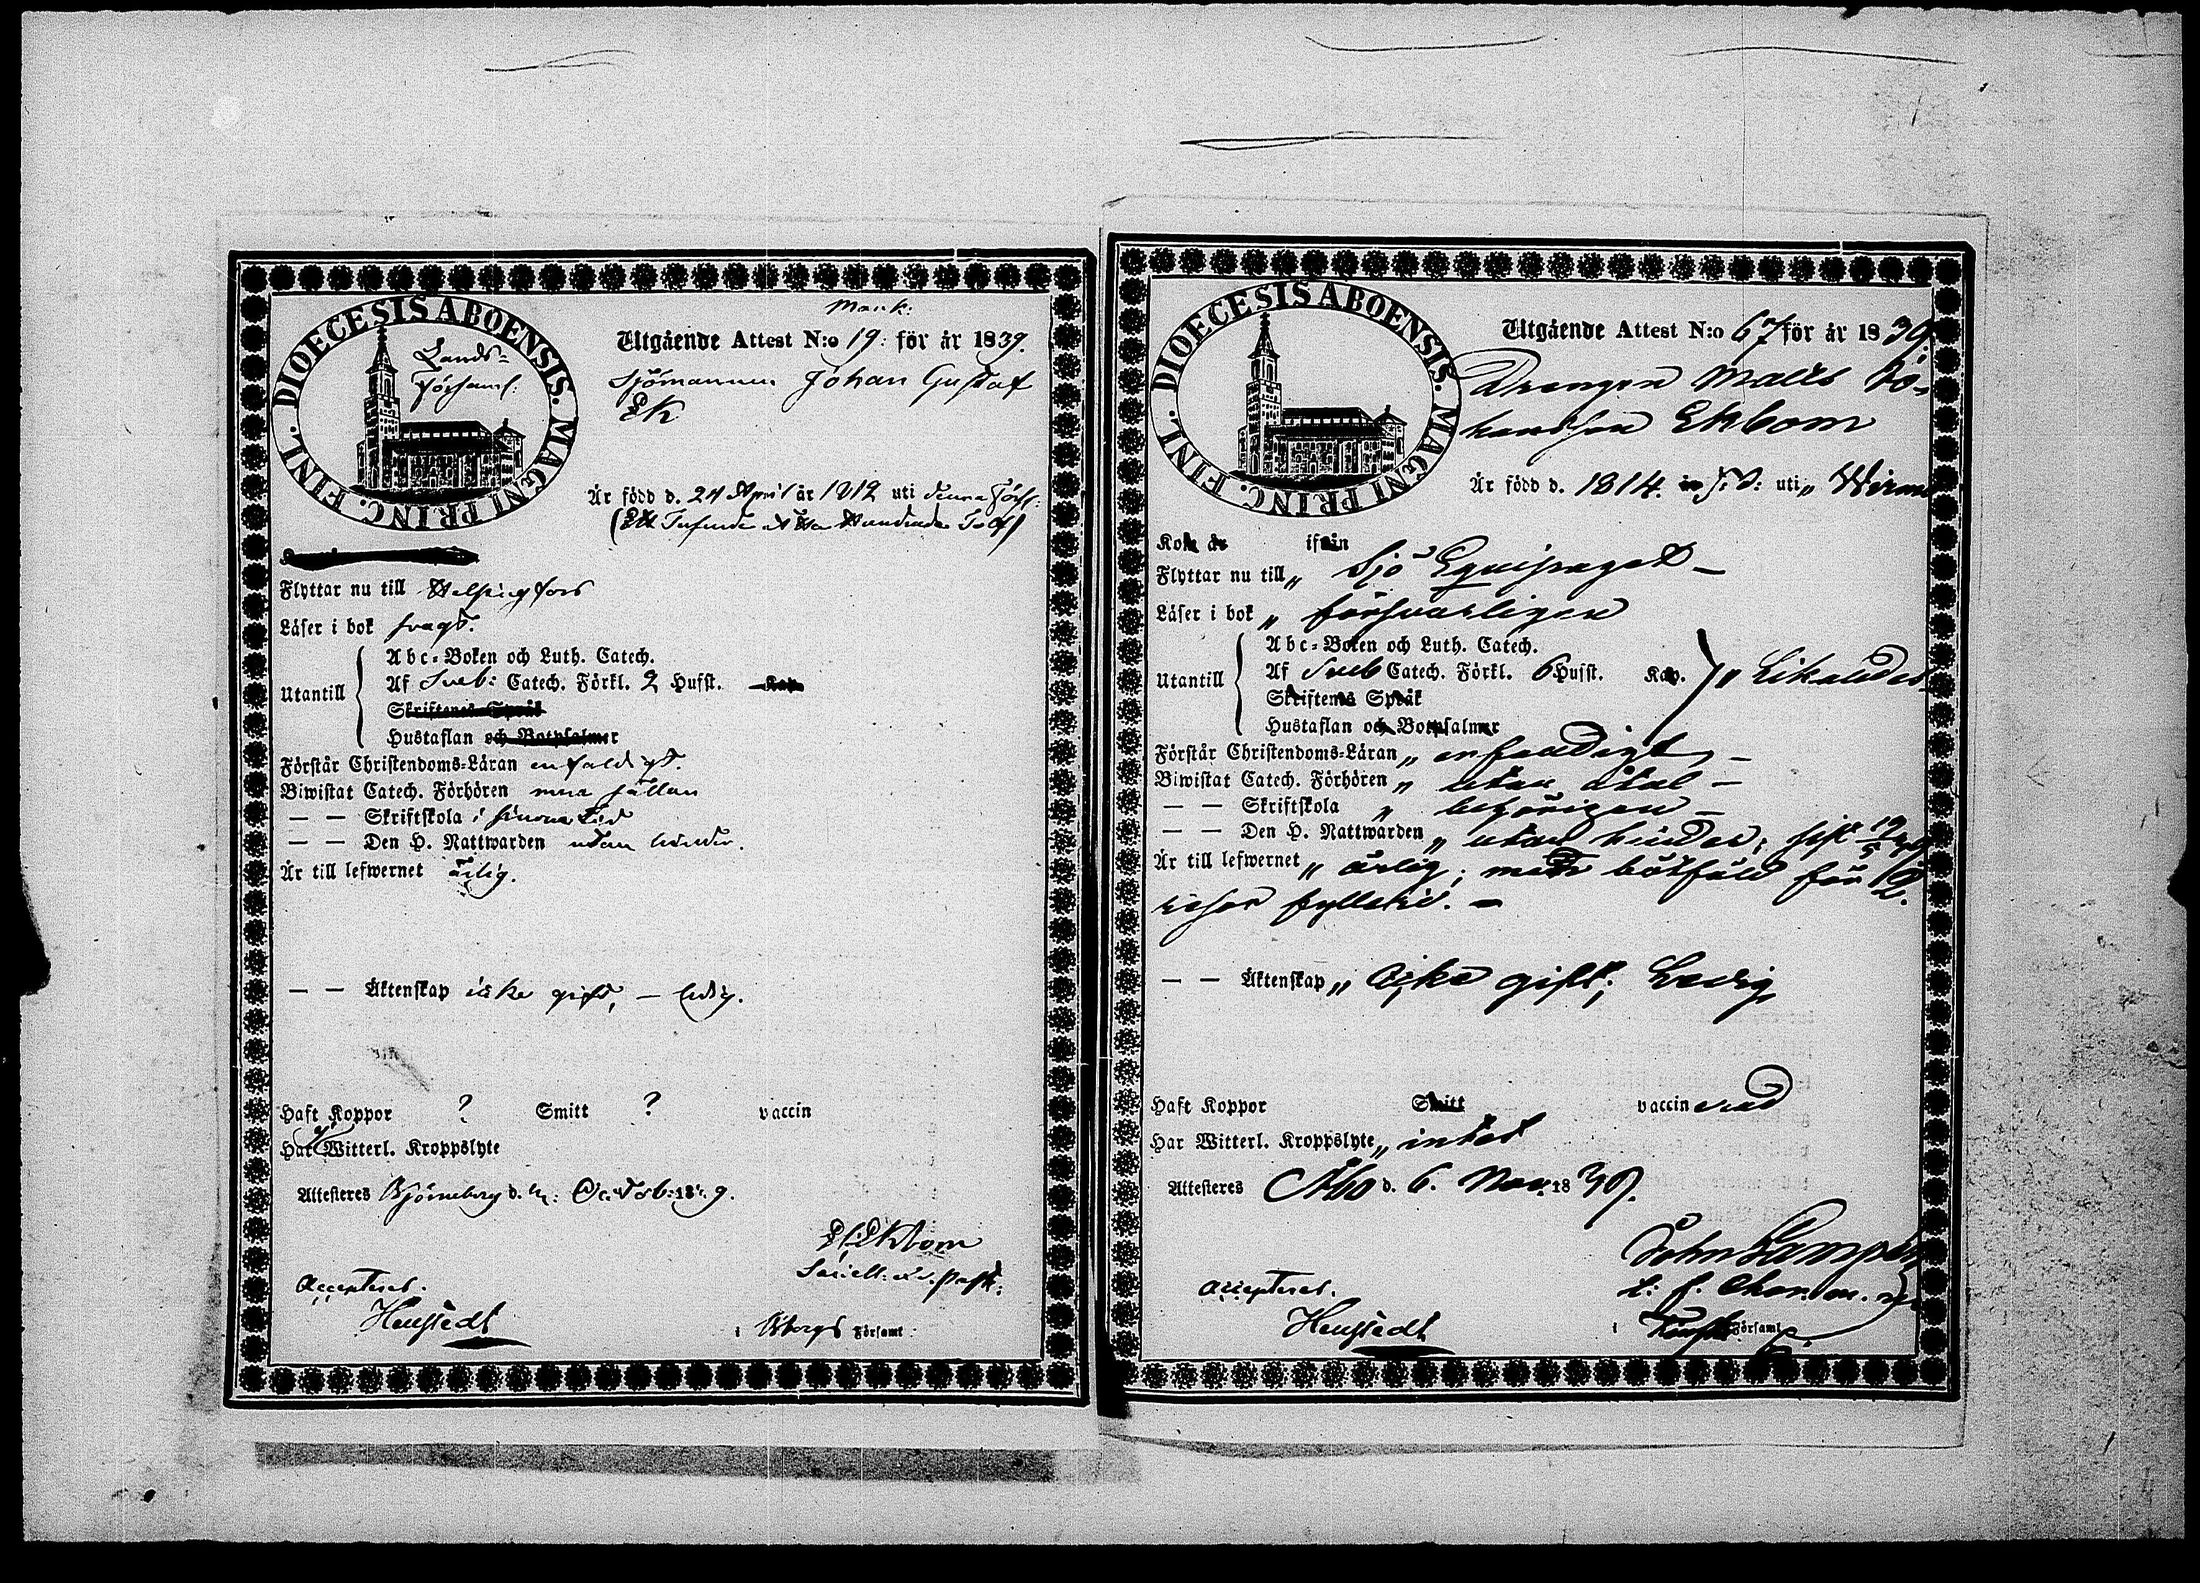 DIOECESIS ABOENSIS. MAGNI PRINC. FINL.
Lands=
församl:
Mark:
Utgående Attest N:o 19: för år 1839.
Sjömannen Johan Gustaf
Ek
Är född d. 24 April år 1812 uti denna Förs:
(Ett Tusende Åtta Hundrade Tolf)
Flyttar nu till Helsingfors
Läser i bok svagt.
Utantill
Abc=Boken och Luth. Catech.
Af Sveb: Catech. Förkl. 2 Hufst. Kap.
Skriftenes Språk
Hustaflan och Botpsalmer
Förstår Christendoms=Läran enfaldigt.
Biwistat Catech. Förhören mera sällan
— — Skriftskola i sinom tid
— — Den H. Nattwarden utan hinder.
Är till lefwernet ärlig.
— — Äktenskap icke gift, — ledig.
Haft Koppor ? Smitt ? vaccin
Har Witterl. Kroppslyte
Attesteres Björneborg d. Octob: 1839.
Ekbom
Accepteras.
Heustedt
i Bborgs Församl:
DIOECESIS ABOENSIS. MAGNI PRINC. FINL.
Utgående Attest N:o 67 för år 1839.
Drengen Matts Jo-
hansson Ekbom
Är född d. 1814. uti „ Wirmo
Kom år ifrån
Flyttar nu till „ Sjö Equipaget —
Läser i bok „ försvarligen
Utantill
Abc=Boken och Luth. Catech.
Af Sveb Catech. Förkl. 6 Hufst. Kap. „ Likaledes
Skriftenes Språk
Hustaflan och Botpsalmer
Förstår Christendoms=Läran „ enfaldigt, —
Biwistat Catech. Förhören „ utan åtal —
— — Skriftskola „ behörigen —
— — Den H. Nattwarden „ utan hinder; sist
Är till lefwernet „ ärlig; men bötfäld för 2
resor fylleri. —
— — Äktenskap „ Icke gift; Ledig
Haft Koppor Smitt vaccinerad
Har Witterl. Kroppslyte „ intet
Attesteres Åbo d. 6. Nov. 1839.
John
Accepteras.
Heustedt
i Församl.